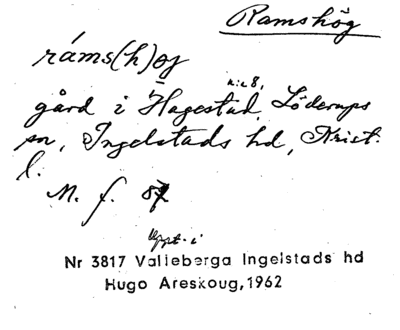 Ramshög
ráms(h)øj
n:o 8,
gård i Hagestad, Löderups
sn, Ingelstads hd, Krist.
l.
M. f. 87
Uppt. i
Nr 3817 Valleberga Ingelstads hd
Hugo Areskoug, 1962